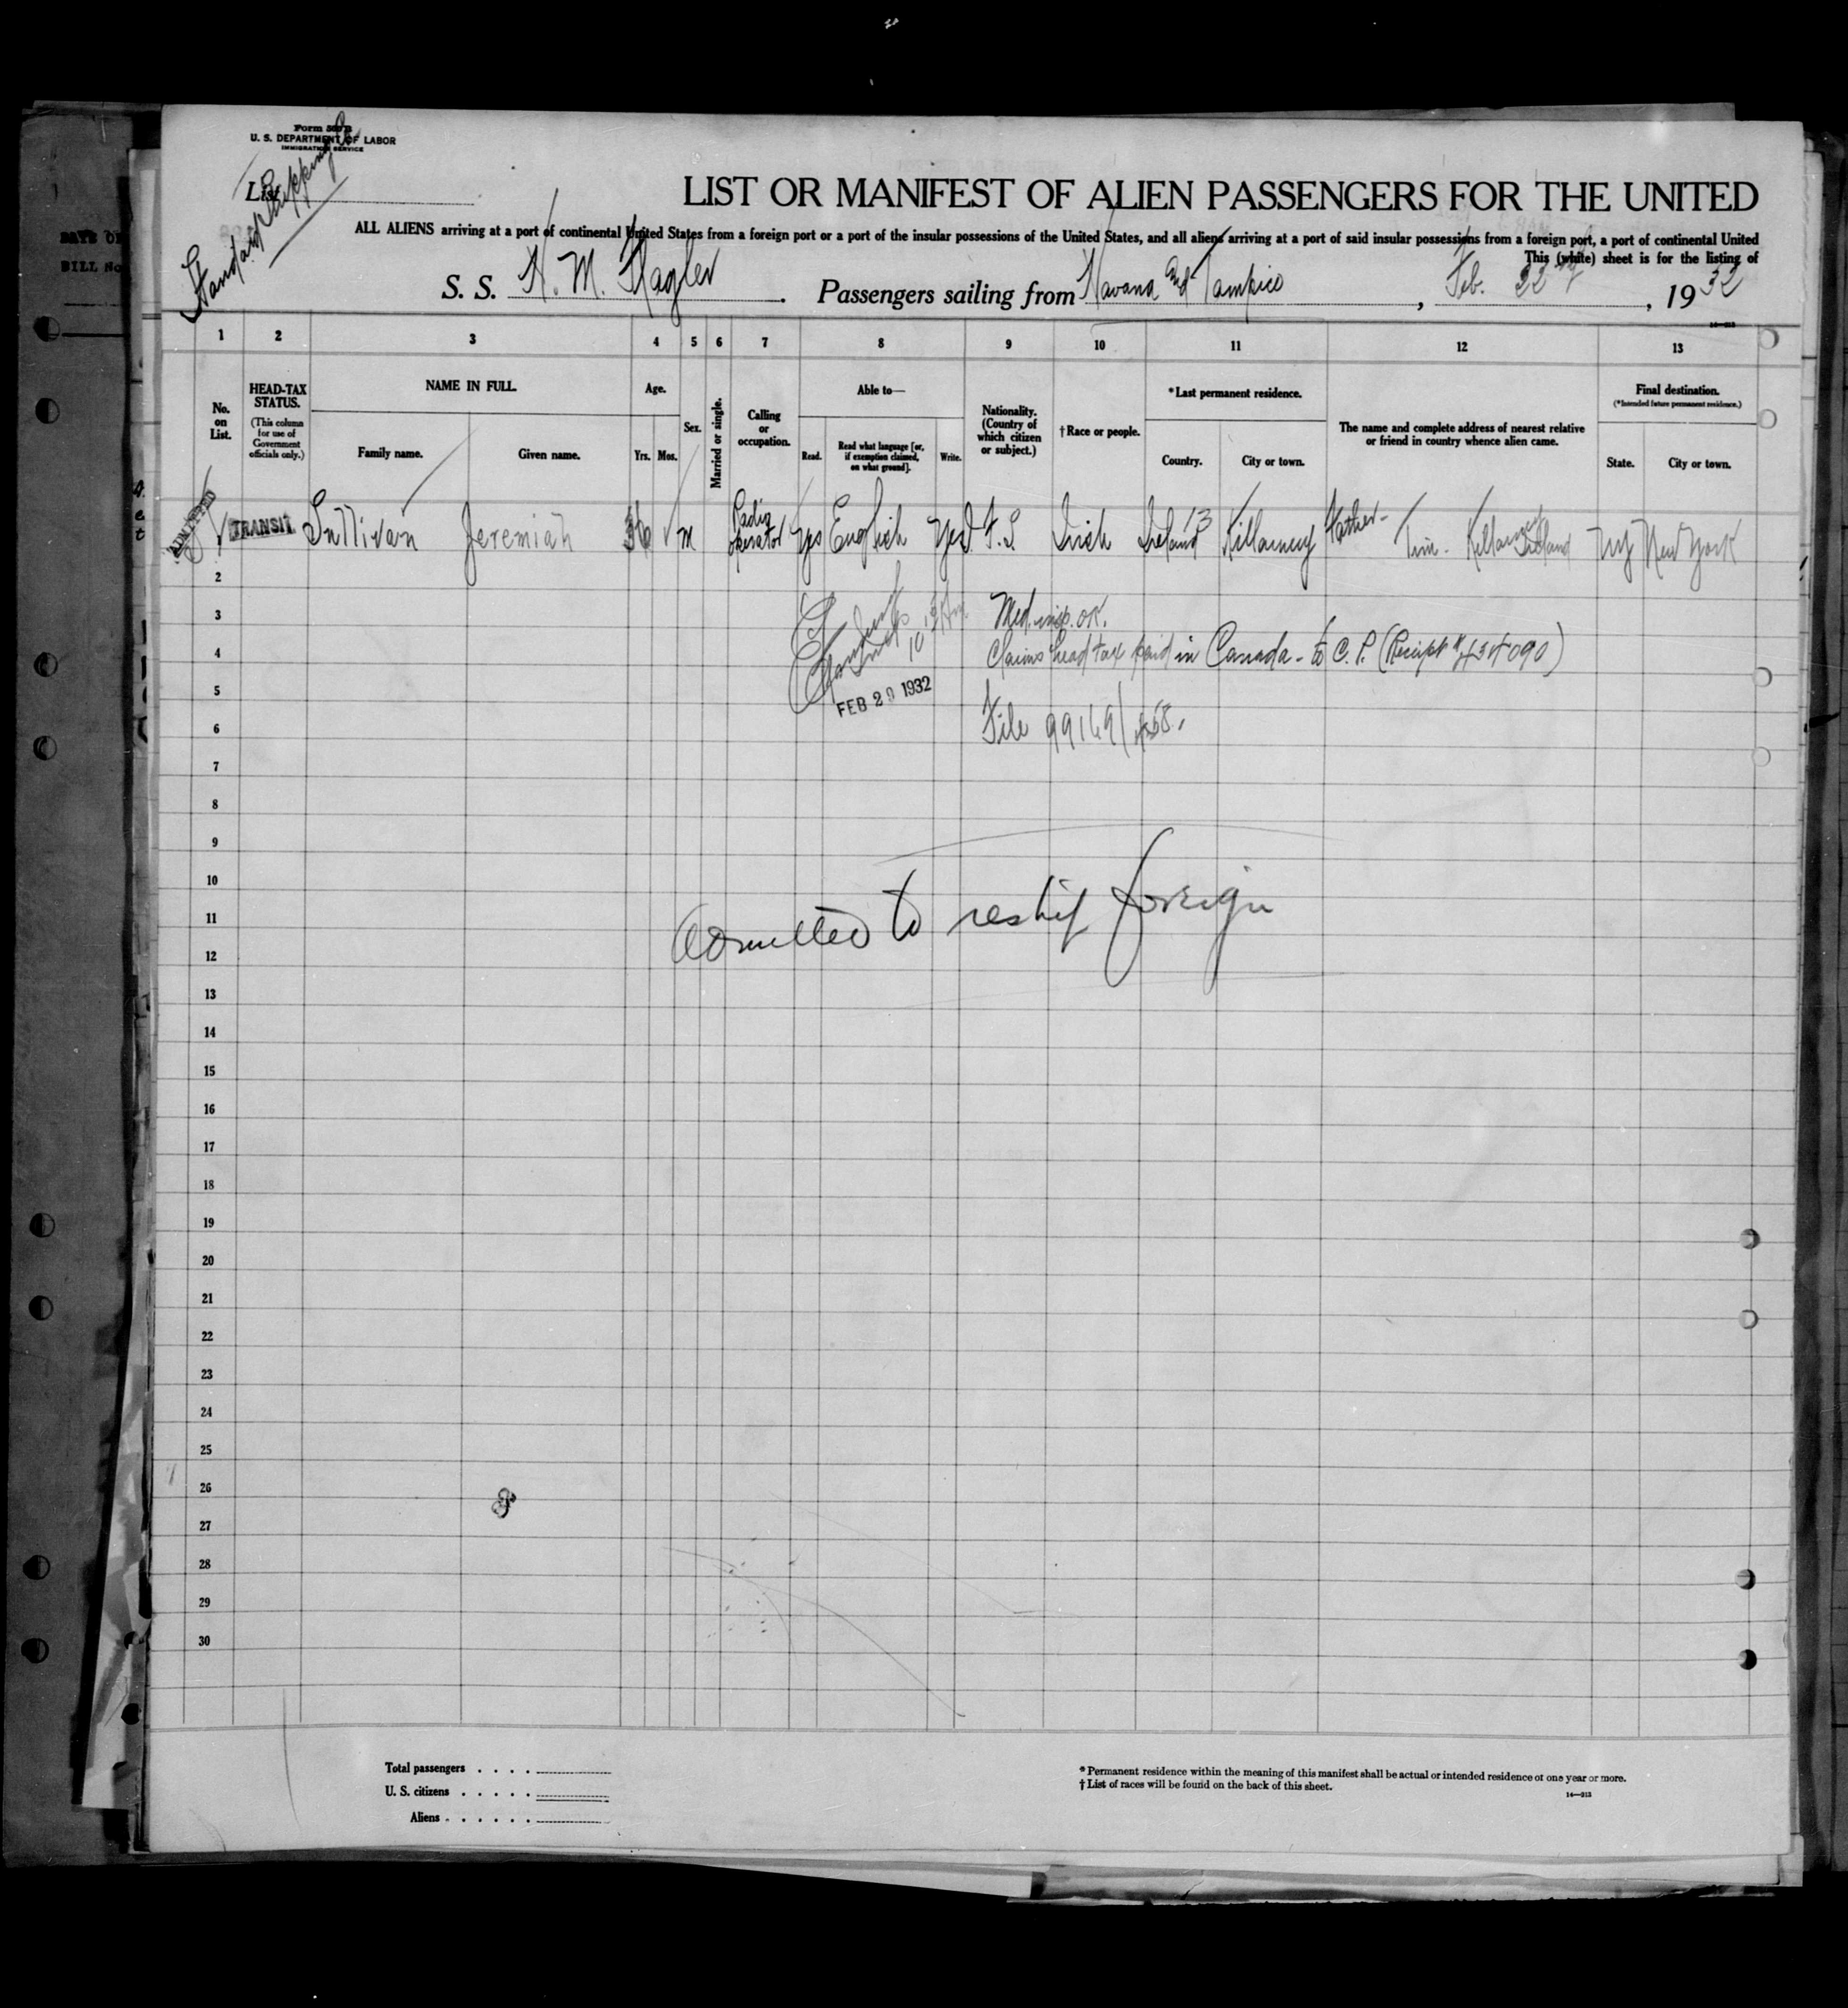 Form 500 B
U. S. DEPARTMENT OF LABOR
IMMIGRATION SERVICE
List
Standard Shipping Co
LIST OR MANIFEST OF ALIEN PASSENGERS FOR THE UNITED
ALL ALIENS arriving at a port of continental United States from a foreign port or a port of the insular possessions of the United States, and all aliens arriving at a port of said insular possessions from a foreign port, a port of continental United
This (white) sheet is for the listing of
S. S. H. M. Flagler . Passengers sailing from Havana and Tampico , Feb. 22nd , 19 32
14—213
1 2 3 4 5 6 7 8 9 10 11 12 13
No. on List.
HEAD-TAX STATUS.
(This column for use of Government officials only.)
NAME IN FULL.
Family name. Given name.
Age.
Yrs. Mos.
Sex.
Married or single.
Calling or occupation.
Able to—
Read. Read what language [or, if exemption claimed, on what ground]. Write.
Nationality. (Country of which citizen or subject.)
† Race or people.
*Last permanent residence.
Country. City or town.
The name and complete address of nearest relative or friend in country whence alien came.
Final destination.
(*Intended future permanent residence.)
State. City or town.
ADMITTED
1 TRANSIT Sullivan Jeremiah 36 m Radio operator yes English yes I.F.S. Irish Ireland 13 Killarney Father- Tim. Killarney Ireland NY New York
2
3 Med. insp. OK.
4 Claims head tax paid in Canada - to C. P. (Receipt #
5 FEB 20 1932
6 File 99169/
7
8
9
10
11 admitted to reship foreign
12
13
14
15
16
17
18
19
20
21
22
23
24
25
26
27
28
29
30
Total passengers . . . .
U. S. citizens . . . . .
Aliens . . . . . .
* Permanent residence within the meaning of this manifest shall be actual or intended residence of one year or more.
† List of races will be found on the back of this sheet.
14—213